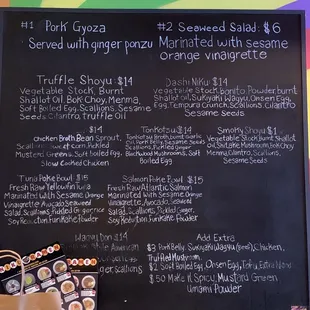 #1 Pork Gyoza
Served with ginger ponzu
#2 Seaweed Salad: $6
Marinated with sesame
orange vinaigrette
Truffle Shoyu: $14
Vegetable Stock, Burnt
Shallot Oil, Bok Choy, Menma,
Soft Boiled Egg, Scallions, Sesame
Seeds, Cilantro, Truffle Oil
Dashi Niku: $14
Vegetable Stock, Bonito Powder, burnt
Shallot oil, Sukiyaki Wagyu, Onsen Egg,
Egg, Tempura Crunch, Scallions, Cilantro
Sesame Seeds
$14
Chicken Broth, Bean Sprout,
Scallions, Sweet corn, Pickled
Mustard Greens, Soft boiled Egg,
Slow Cooked Chicken
Tonkotsu $14
Tonkotsu Broth, burnt Garlic
Oil, Pork Belly, Sesame Seeds
Scallions, Pickled Ginger,
Mushrooms, Soft
Boiled Egg
Smoky Sho $1
Vegetable Stock, Burnt Shallot
Oil, Mushroom, Bok Choy,
Menma, Cilantro, Scallions,
Sesame Seeds
Tuna Poke Bowl $15
Fresh Raw Yellowfin Tuna
Marinated with Sesame Orange
Vinaigrette, Avocado, Seaweed
Salad, Scallions, Pickled Ginger,
Soy Reduction, Furikake Powder
Salmon Poke Bowl $15
Fresh Raw Atlantic Salmon
Marinated with Sesame Orange
Vinaigrette, Avocado, Seaweed
Salad, Scallions, Pickled Ginger,
Soy Reduction, Furikake Powder
Wagyu Don $14
American
Scallions
Add Extra
$3 Pork Belly, Sukiyaki Wagyu, Chicken,
Truffled Mushroom
$2 Soft Boiled Egg, Onsen Egg, Tofu, Extra Noodle
$.50 Make it Spicy, Mustard Green
Umami Powder